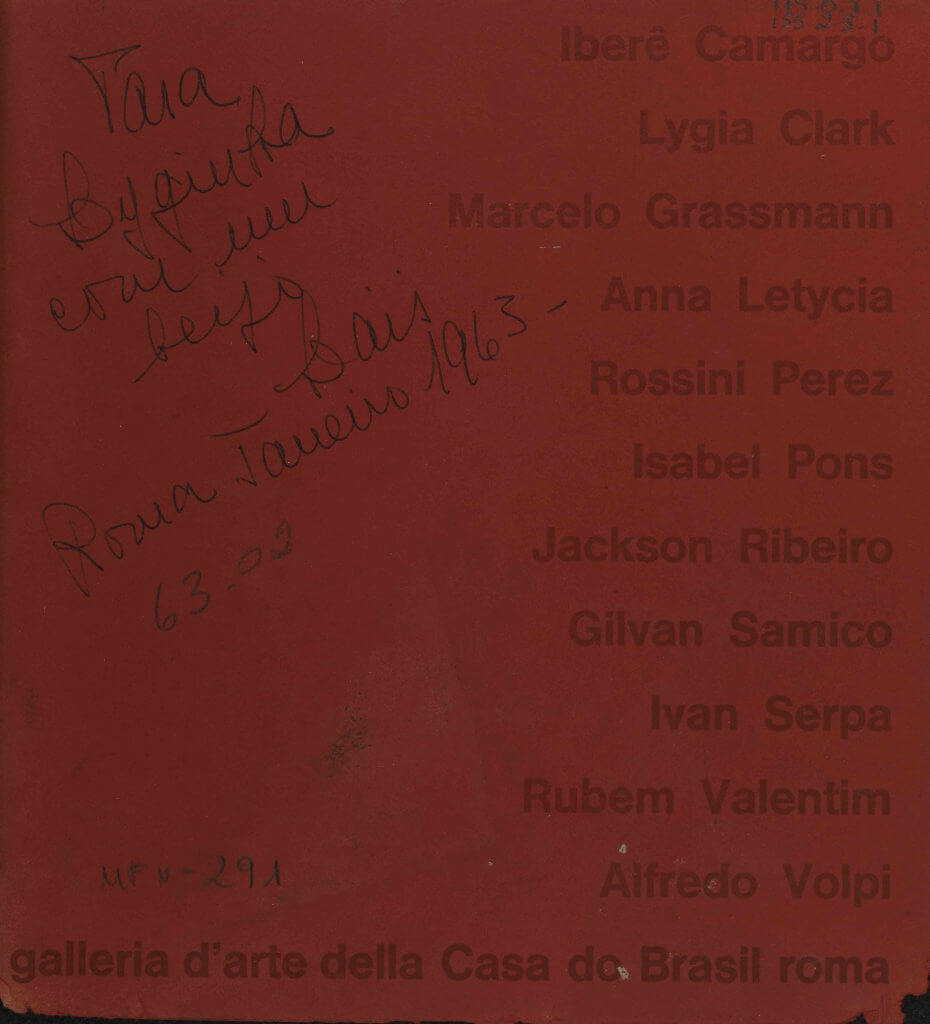 Iberê Camargo
Lygia Clark
Marcelo Grassmann
Anna Letycia
Rossini Perez
Isabel Pons
Jackson Ribeiro
Gilvan Samico
Ivan Serpa
Rubem Valentim
Alfredo Volpi
galleria d'arte della Casa do Brasil roma
Para
Lyginha
com um
beijo
Roma Janeiro 1963 -
63-02
291